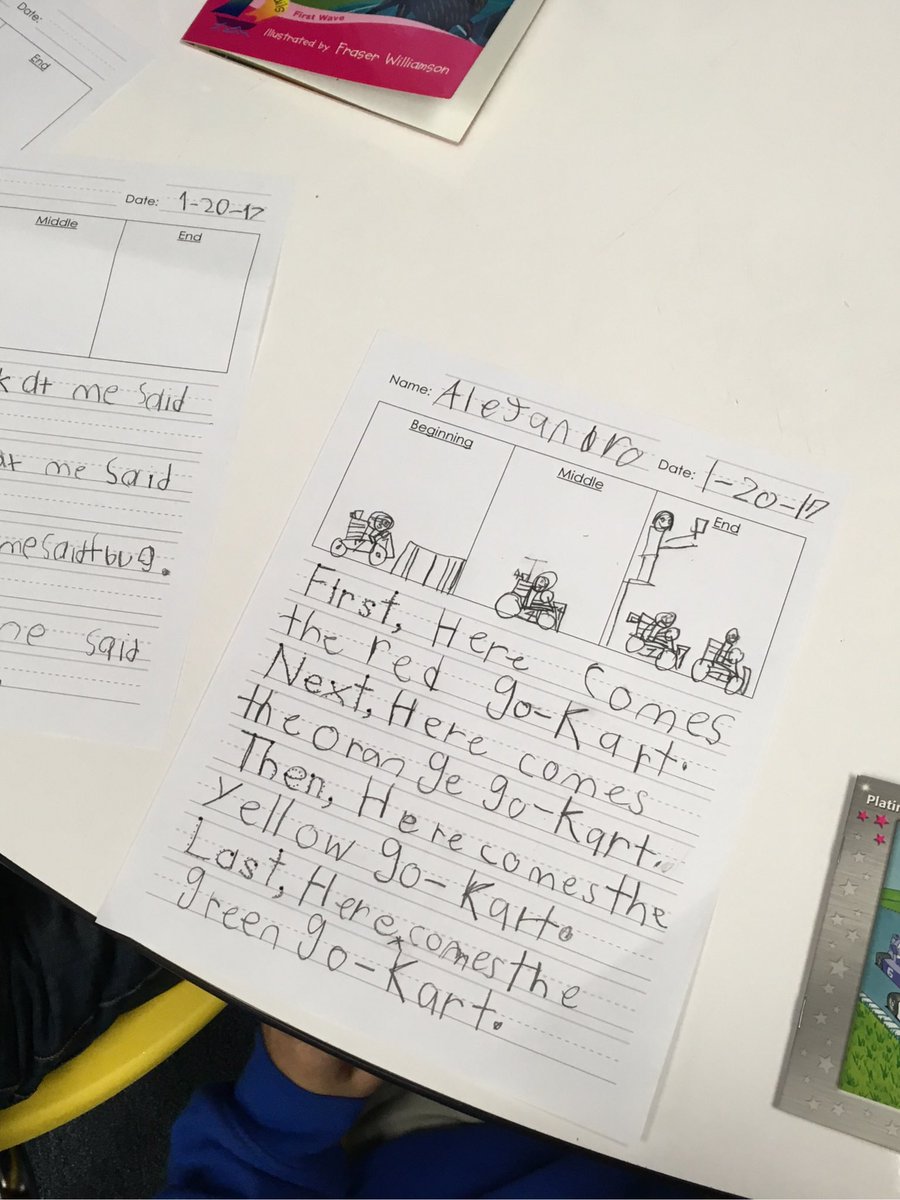 First Wave
Illustrated by Fraser Williamson
Date:
End
Date: 1-20-17
Middle
End
at me said
me said
me said
said
Name: Alejandro Date: 1-20-17
Beginning
Middle
End
First, Here comes
the red go-Kart.
Next, Here comes
the Orange go-Kart.
Then, Here comes the
yellow go-Kart.
Last, Here comes the
green go-Kart.